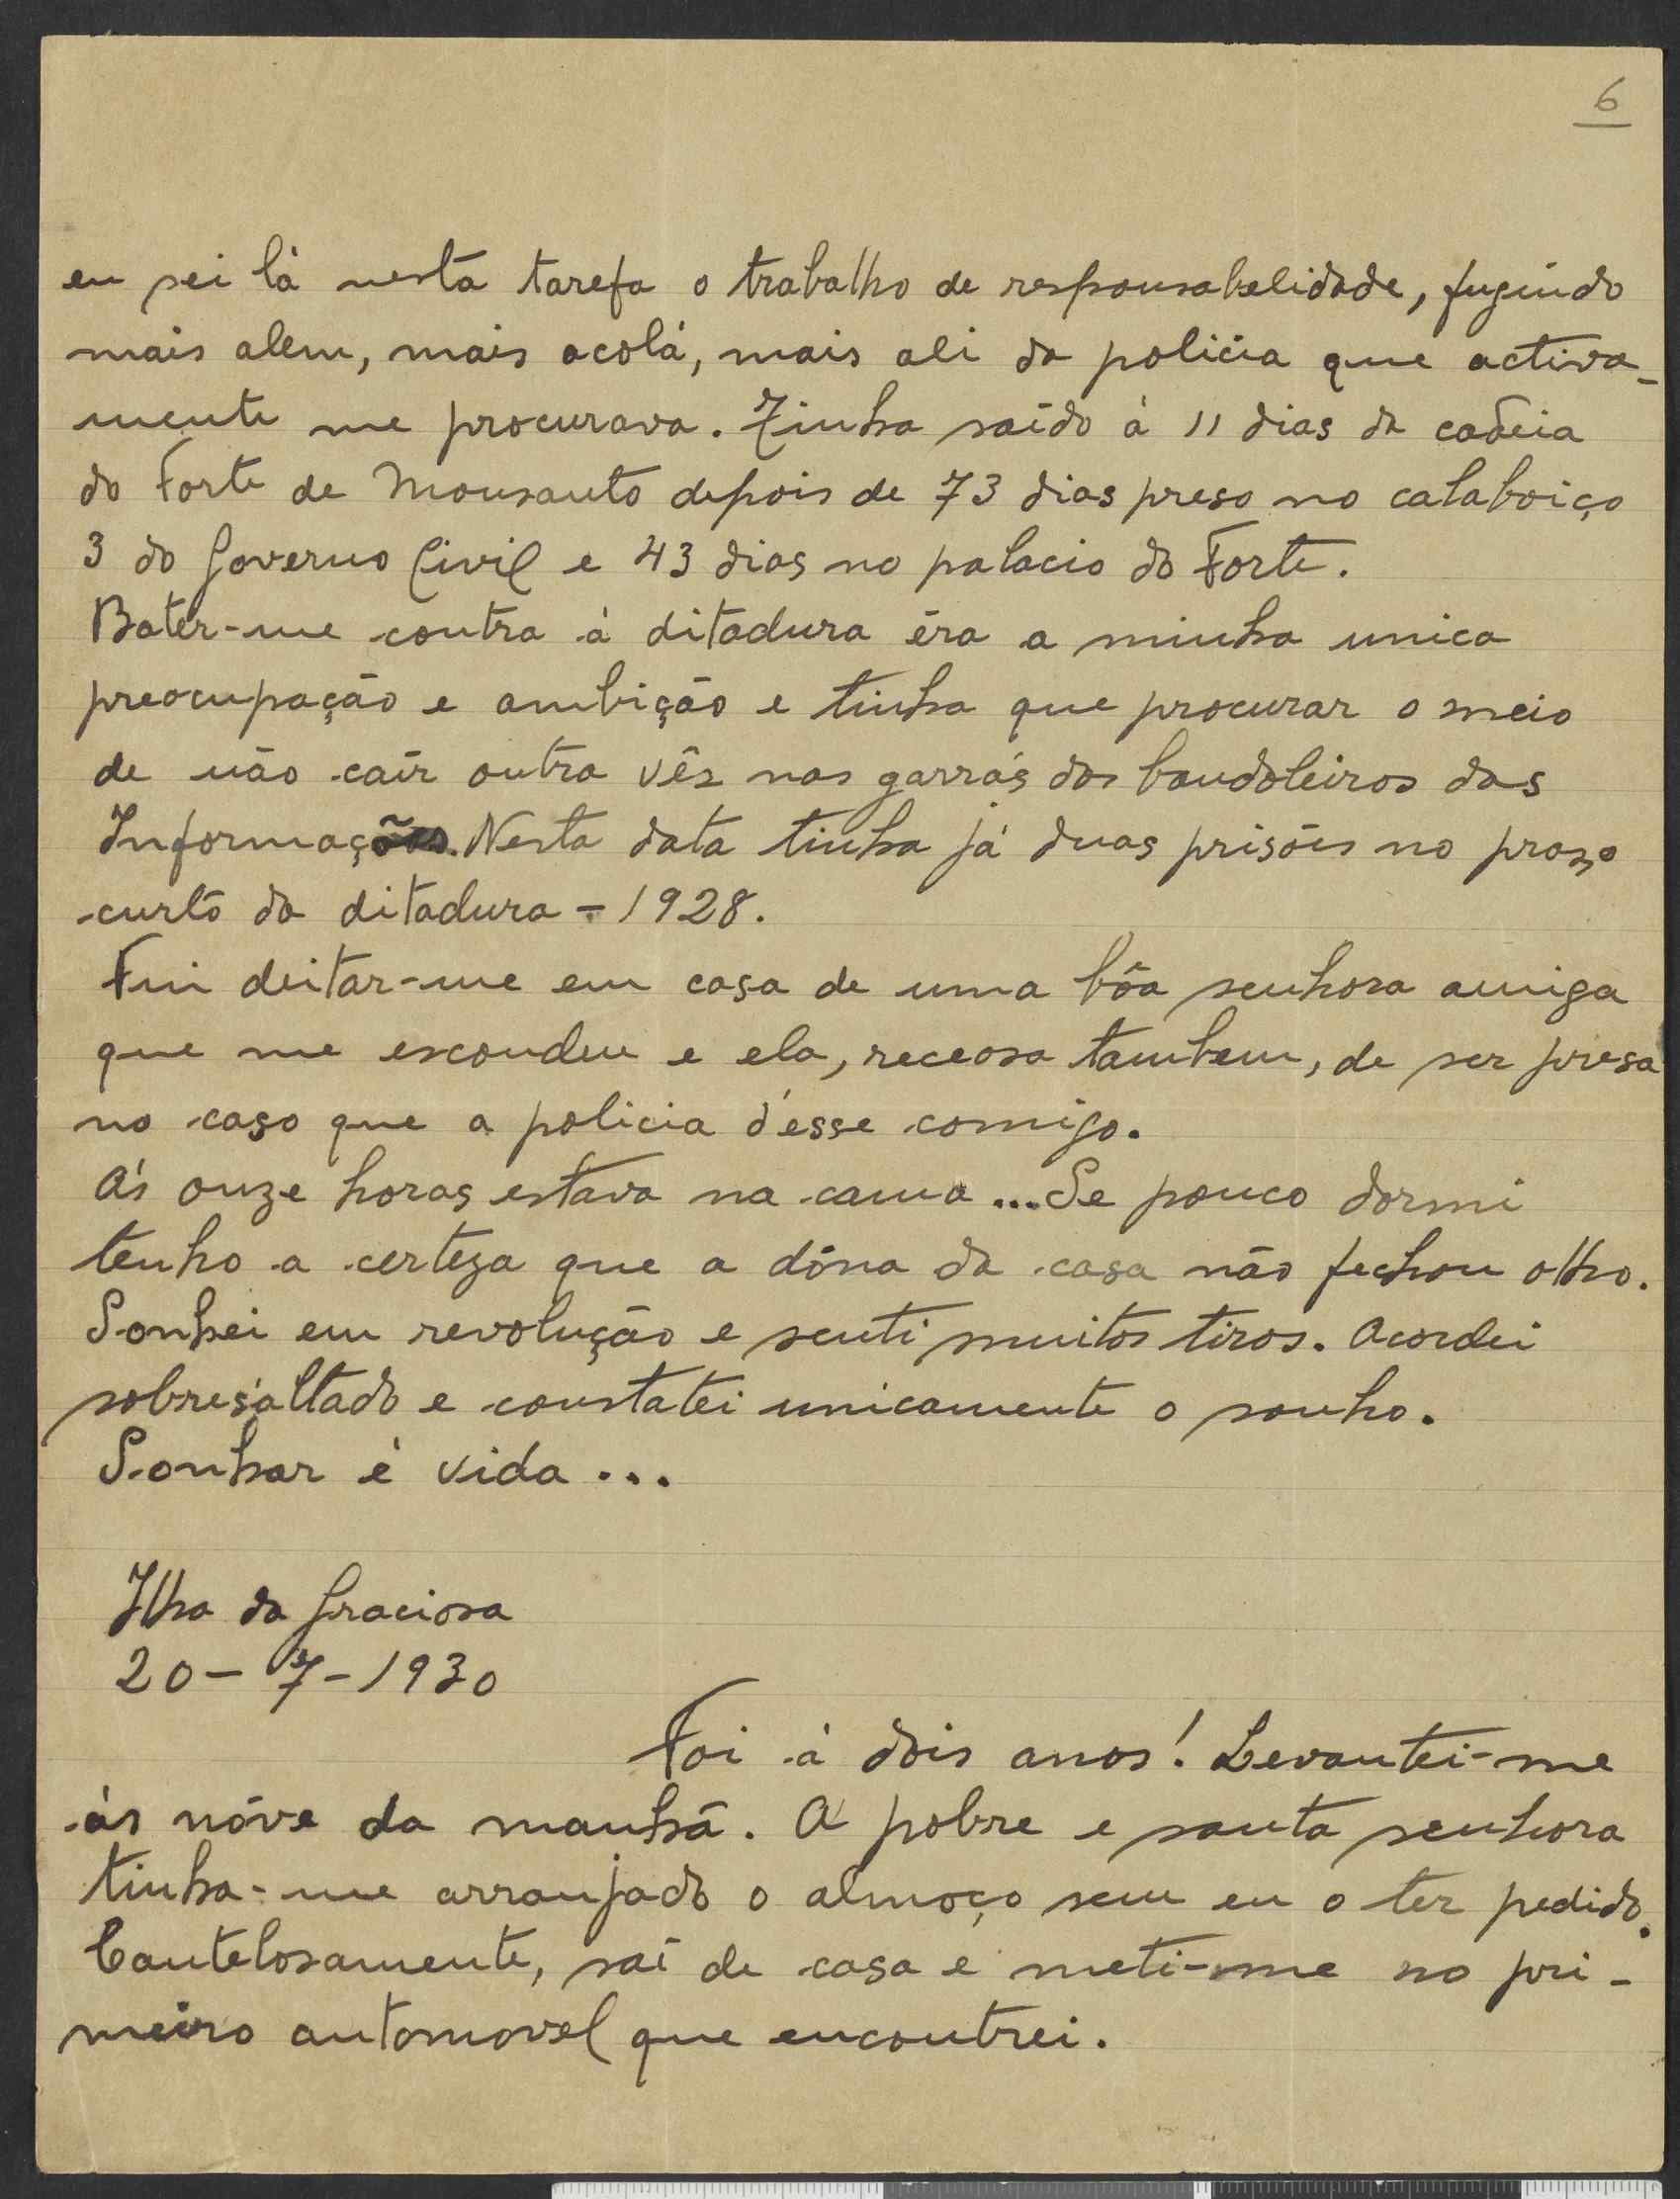 6
eu sei lá nesta tarefa o trabalho de responsabelidade, fugindo
mais alem, mais acolá, mais ali da policia que activa-
mente me procurava. Tinha saído á 11 dias da cadeia
do Forte de Monsanto depois de 73 dias preso no calaboiço
3 do Governo Civil e 43 dias no palacio do Forte.
Batêr-me contra á ditadura éra a minha unica
preocupação e ambição e tinha que procurar o meio
de não caír outra vês nas garrás dos bandoleiros das
Informações. Nesta data tinha já duas prisões no prazo
curtó da ditadura - 1928.
Fui deitar-me em casa de uma bôa senhora amiga
que me escondeu e ela, receosa tambem, de ser presa
no caso que a policia désse comigo.
Ás onze horas estava na cama... Se pouco dormi
tenho a certeza que a dóna da casa não fechou olho.
Sonhei em revolução e senti muitos tiros. Acordei
sobresaltado e constatei unicamente o sonho.
Sonhar é vida...
Ilha da Graciosa
20-7-1930
Foi á dois anos! Levantei-me
ás nóve da manhã. A pobre e santa senhora
tinha-me arranjado o almoço sem eu o ter pedido.
Cautelosamente, saí de casa e meti-me no pri-
meiro automovel que encontrei.